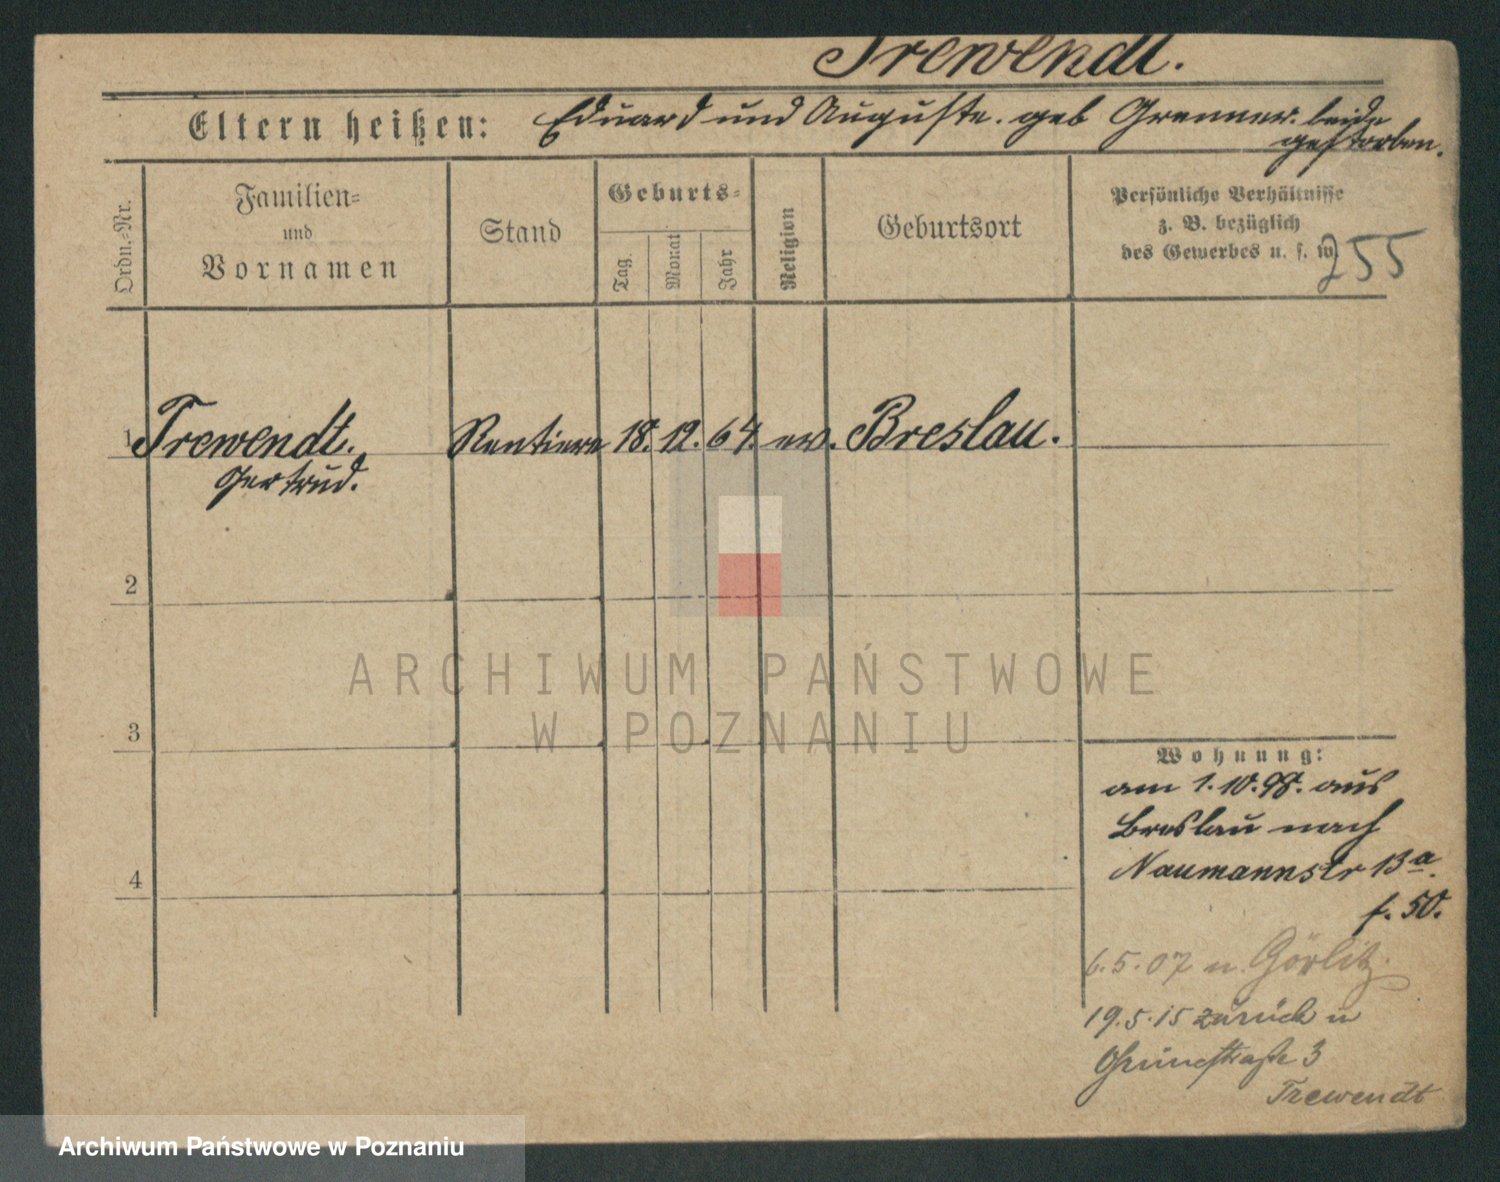 Trewendt.
Eltern heißen: Eduard und Auguste. geb Grenner. beide
gestorben.
Ordn.-Nr.
Familien-
und
Vornamen
Stand
Geburts-
Tag
Monat
Jahr
Religion
Geburtsort
Persönliche Verhältnisse
z. B. bezüglich
des Gewerbes u. s. w.
255
1 Trewendt. Rentiere 18. 12. 64. ev. Breslau.
Gertrud.
2
3
4
ARCHIWUM PAŃSTWOWE
W POZNANIU
Wohnung:
am 1.10.98. aus
Breslau nach
Naumannstr 13a.
f. 50.
6.5.07 n. Görlitz
19.5.15 zurück n
Grünestraße 3
Trewendt
Archiwum Państwowe w Poznaniu